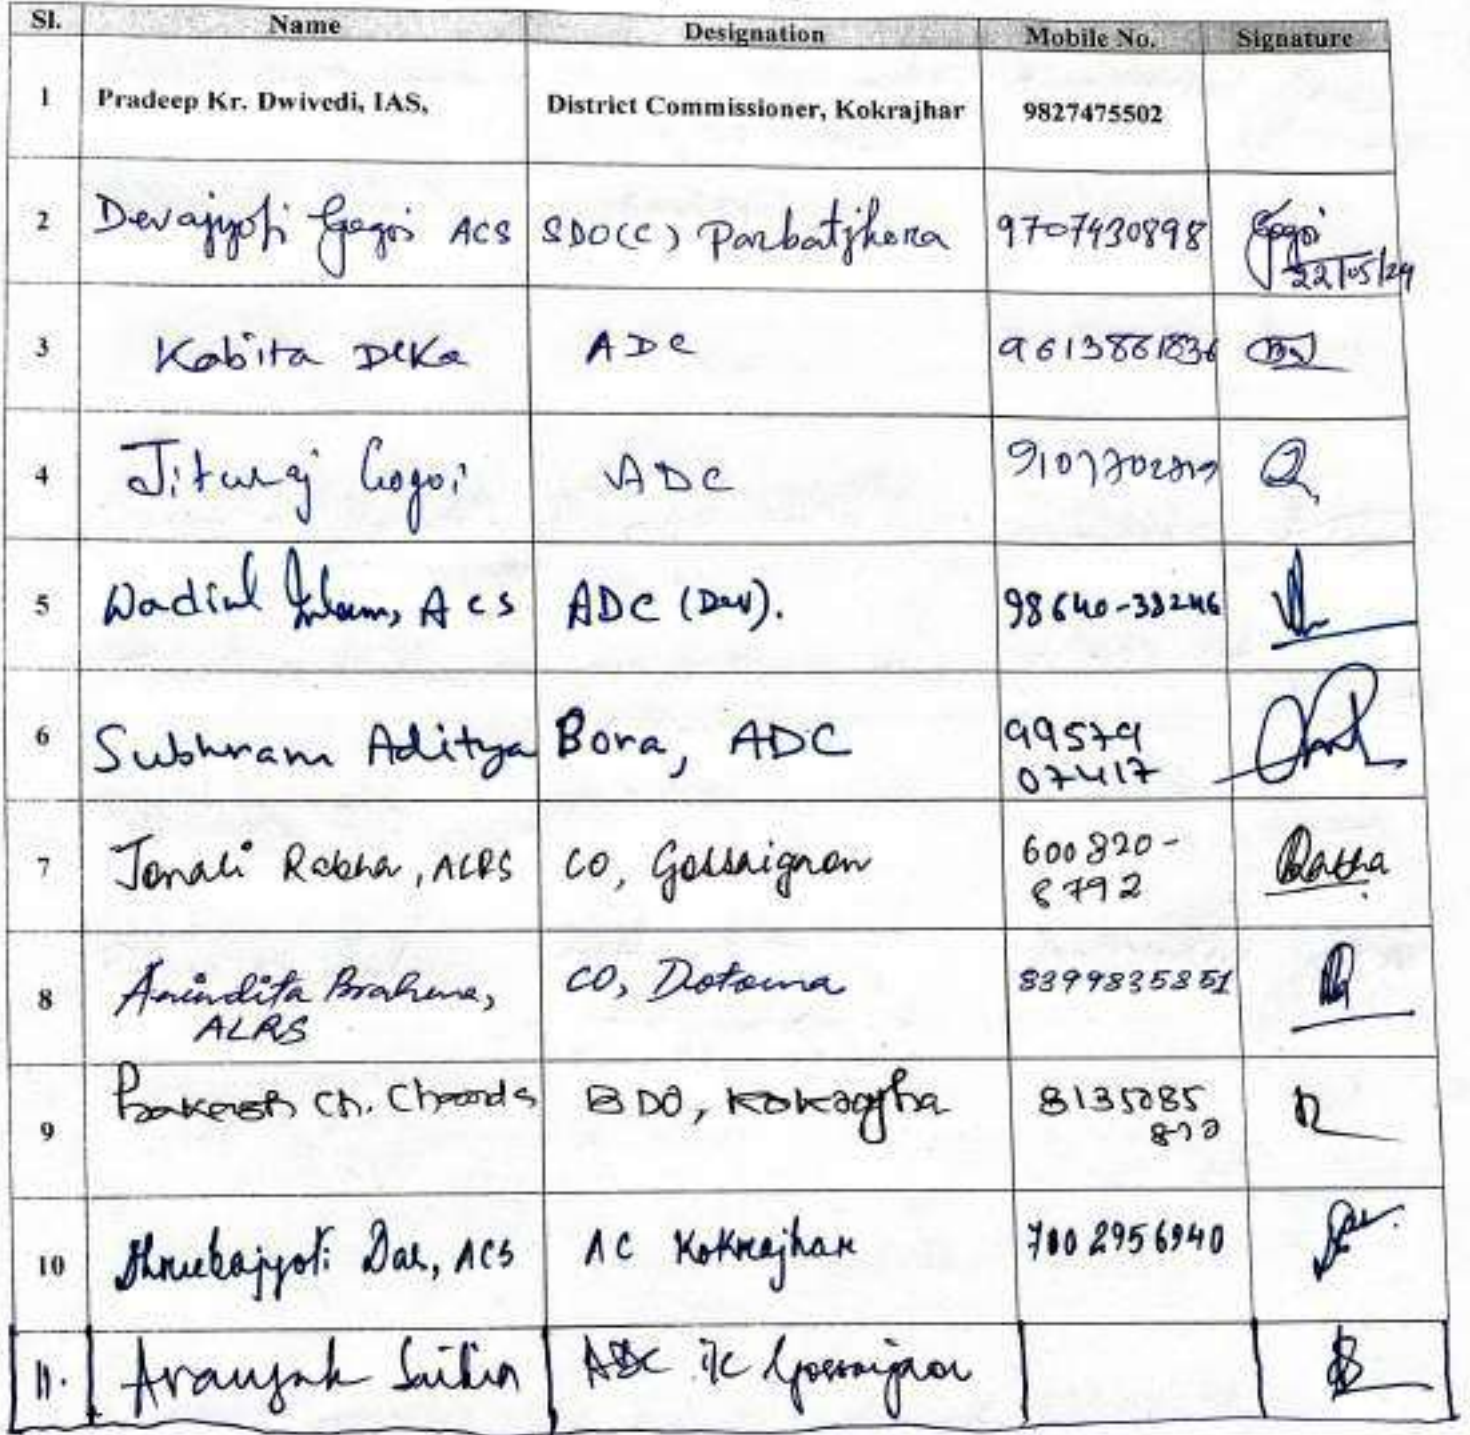 Sl. Name Designation Mobile No. Signature
1 Pradeep Kr. Dwivedi, IAS, District Commissioner, Kokrajhar 9827475502
2 Devajyoti Gogoi ACS SDO(C) Parbatjhora 9707430898 Gogoi
22/05/24
3 Kabita Deka ADC 9613861836
4 Jituraj Gogoi ADC
5 Wadiul Islam, ACS ADC (Dev). 98640-33246
6 Subhram Aditya Bora, ADC 99579
07417
7 Jonali Rabha, ALRS CO, Gossaigaon 600820- Rabha
8792
8 Anindita Brahma, CO, Dotoma 8399835351
ALRS
9 Ch. BDO, Kokrajha 8135085
10 Dhrubajyoti Das, ACS AC Kokrajhar 7002956940
11. Aranyak Saikia i/c Gossaigaon